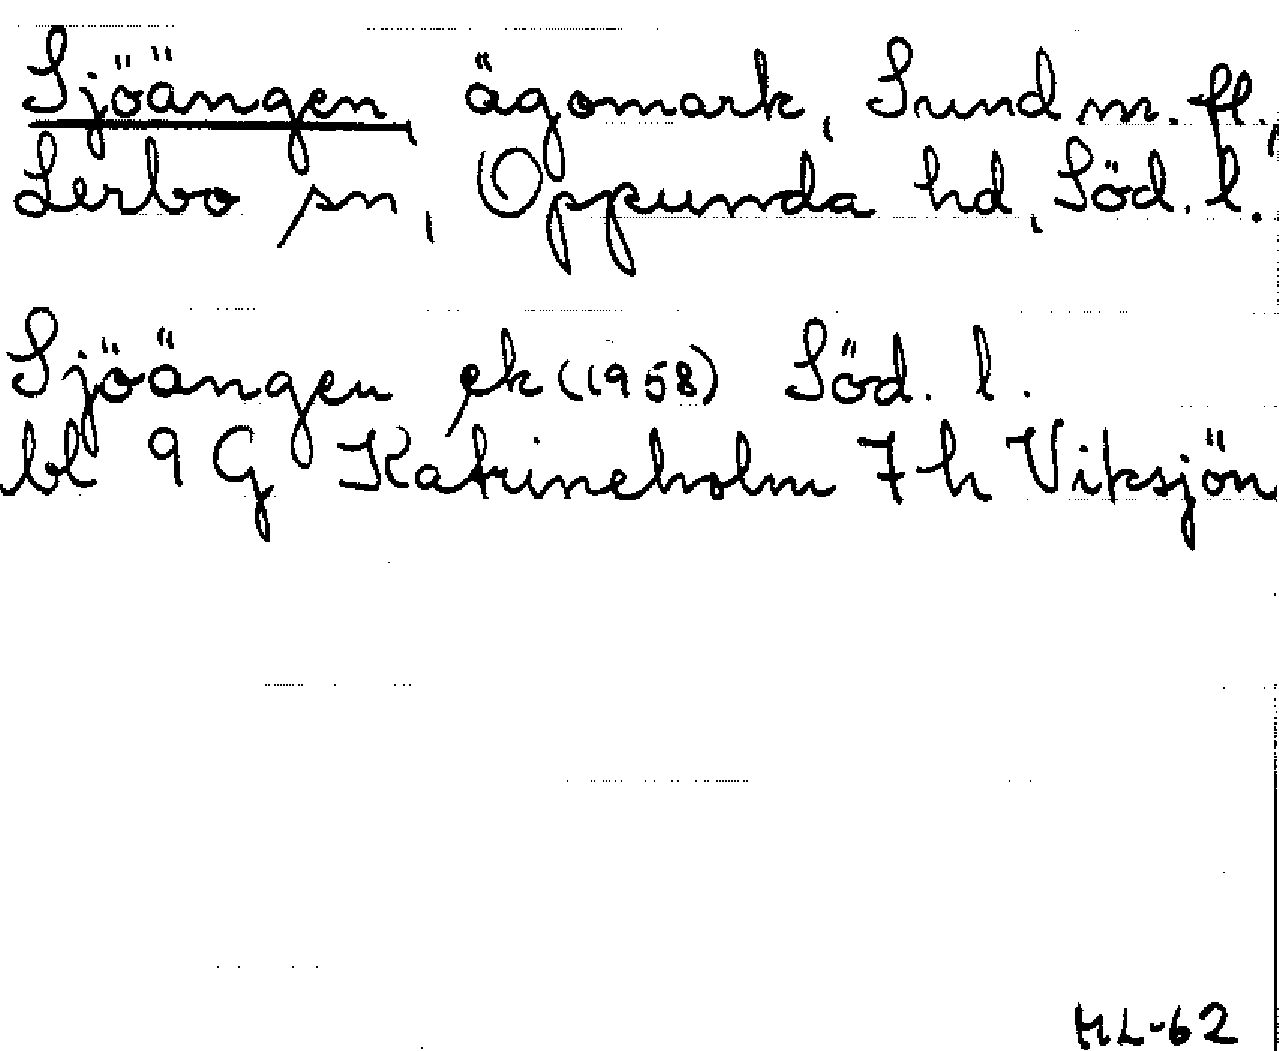 Sjöängen, ägomark, Sund m. fl.,
Lerbo sn, Oppunda hd, Söd. l.
Sjöängen ek (1958) Söd. l.
bl 9 G Katrineholm 7 h Viksjön
ML-62